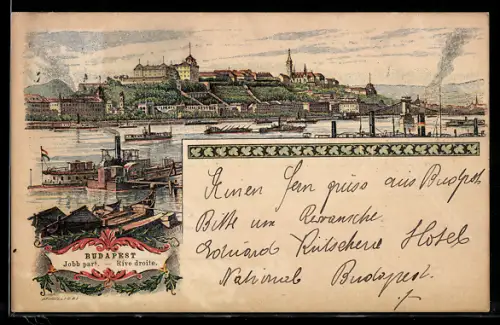 BUDAPEST
Jobb part. — Rive droite.
Einen Ferngruss aus Budapest
Bitte um Revansche.
Eduard Hotel
National Budapest.